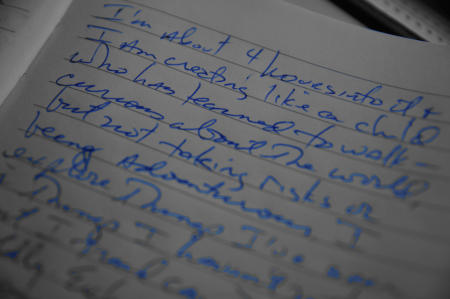 I'm About 4 hours into it &
I Am creating like a child
who has learned to walk -
curious about The world,
but not taking risks or
being Adventurous. I
explore Things I've
Things I haven't